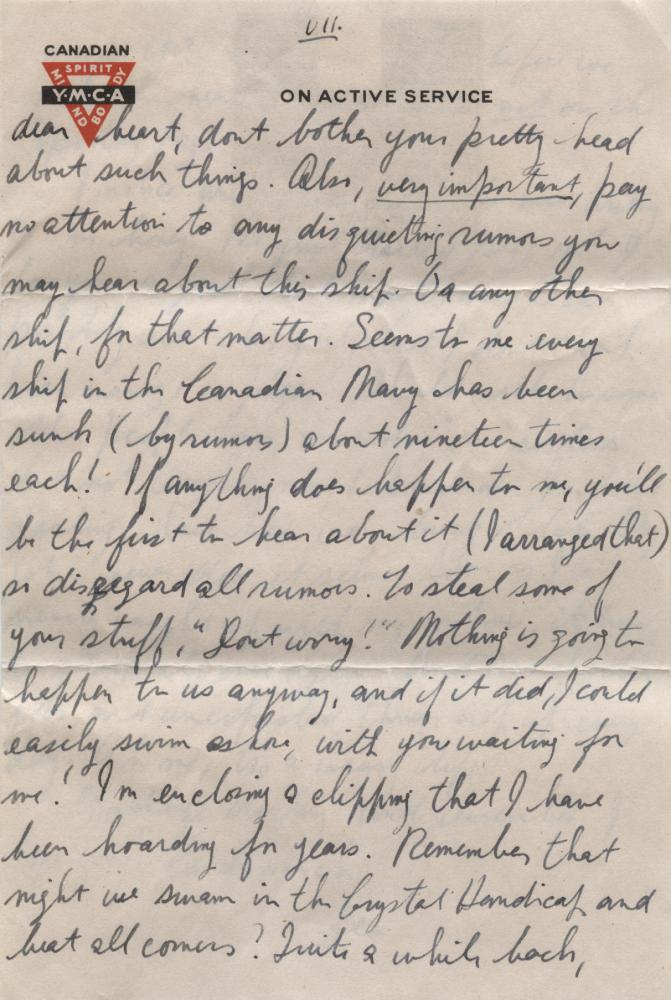 VII.
CANADIAN
SPIRIT
MIND
BODY
Y·M·C·A
ON ACTIVE SERVICE
dear heart, dont bother your pretty head
about such things. Also, very important, pay
no attention to any disquieting rumors you
may hear about this ship. Or any other
ship, for that matter. Seems to me every
ship in the Canadian Navy has been
sunk (by rumors) about nineteen times
each! If anything does happen to me, you'll
be the first to hear about it (I arranged that)
so disregard all rumors. To steal some of
your stuff, "Dont worry!" Nothing is going to
happen to us anyway, and if it did, I could
easily swim ashore, with you waiting for
me! I'm enclosing a clipping that I have
been hoarding for years. Remember that
night we swam in the Crystal Handicap and
beat all comers? Quite a while back,